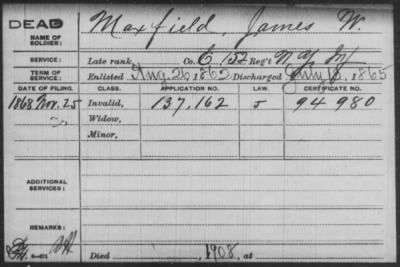 DEAD
NAME OF SOLDIER: Maxfield, James W.
SERVICE: Late rank, Co. E, 152 Reg't N.Y. Inf
TERM OF SERVICE: Enlisted Aug. 26, 1862, Discharged 1865
DATE OF FILING. CLASS. APPLICATION NO. LAW. CERTIFICATE NO.
1868 Nov. 25 Invalid, 137,162 94 980
Widow,
Minor,
ADDITIONAL SERVICES:
REMARKS:
Died 1908, at